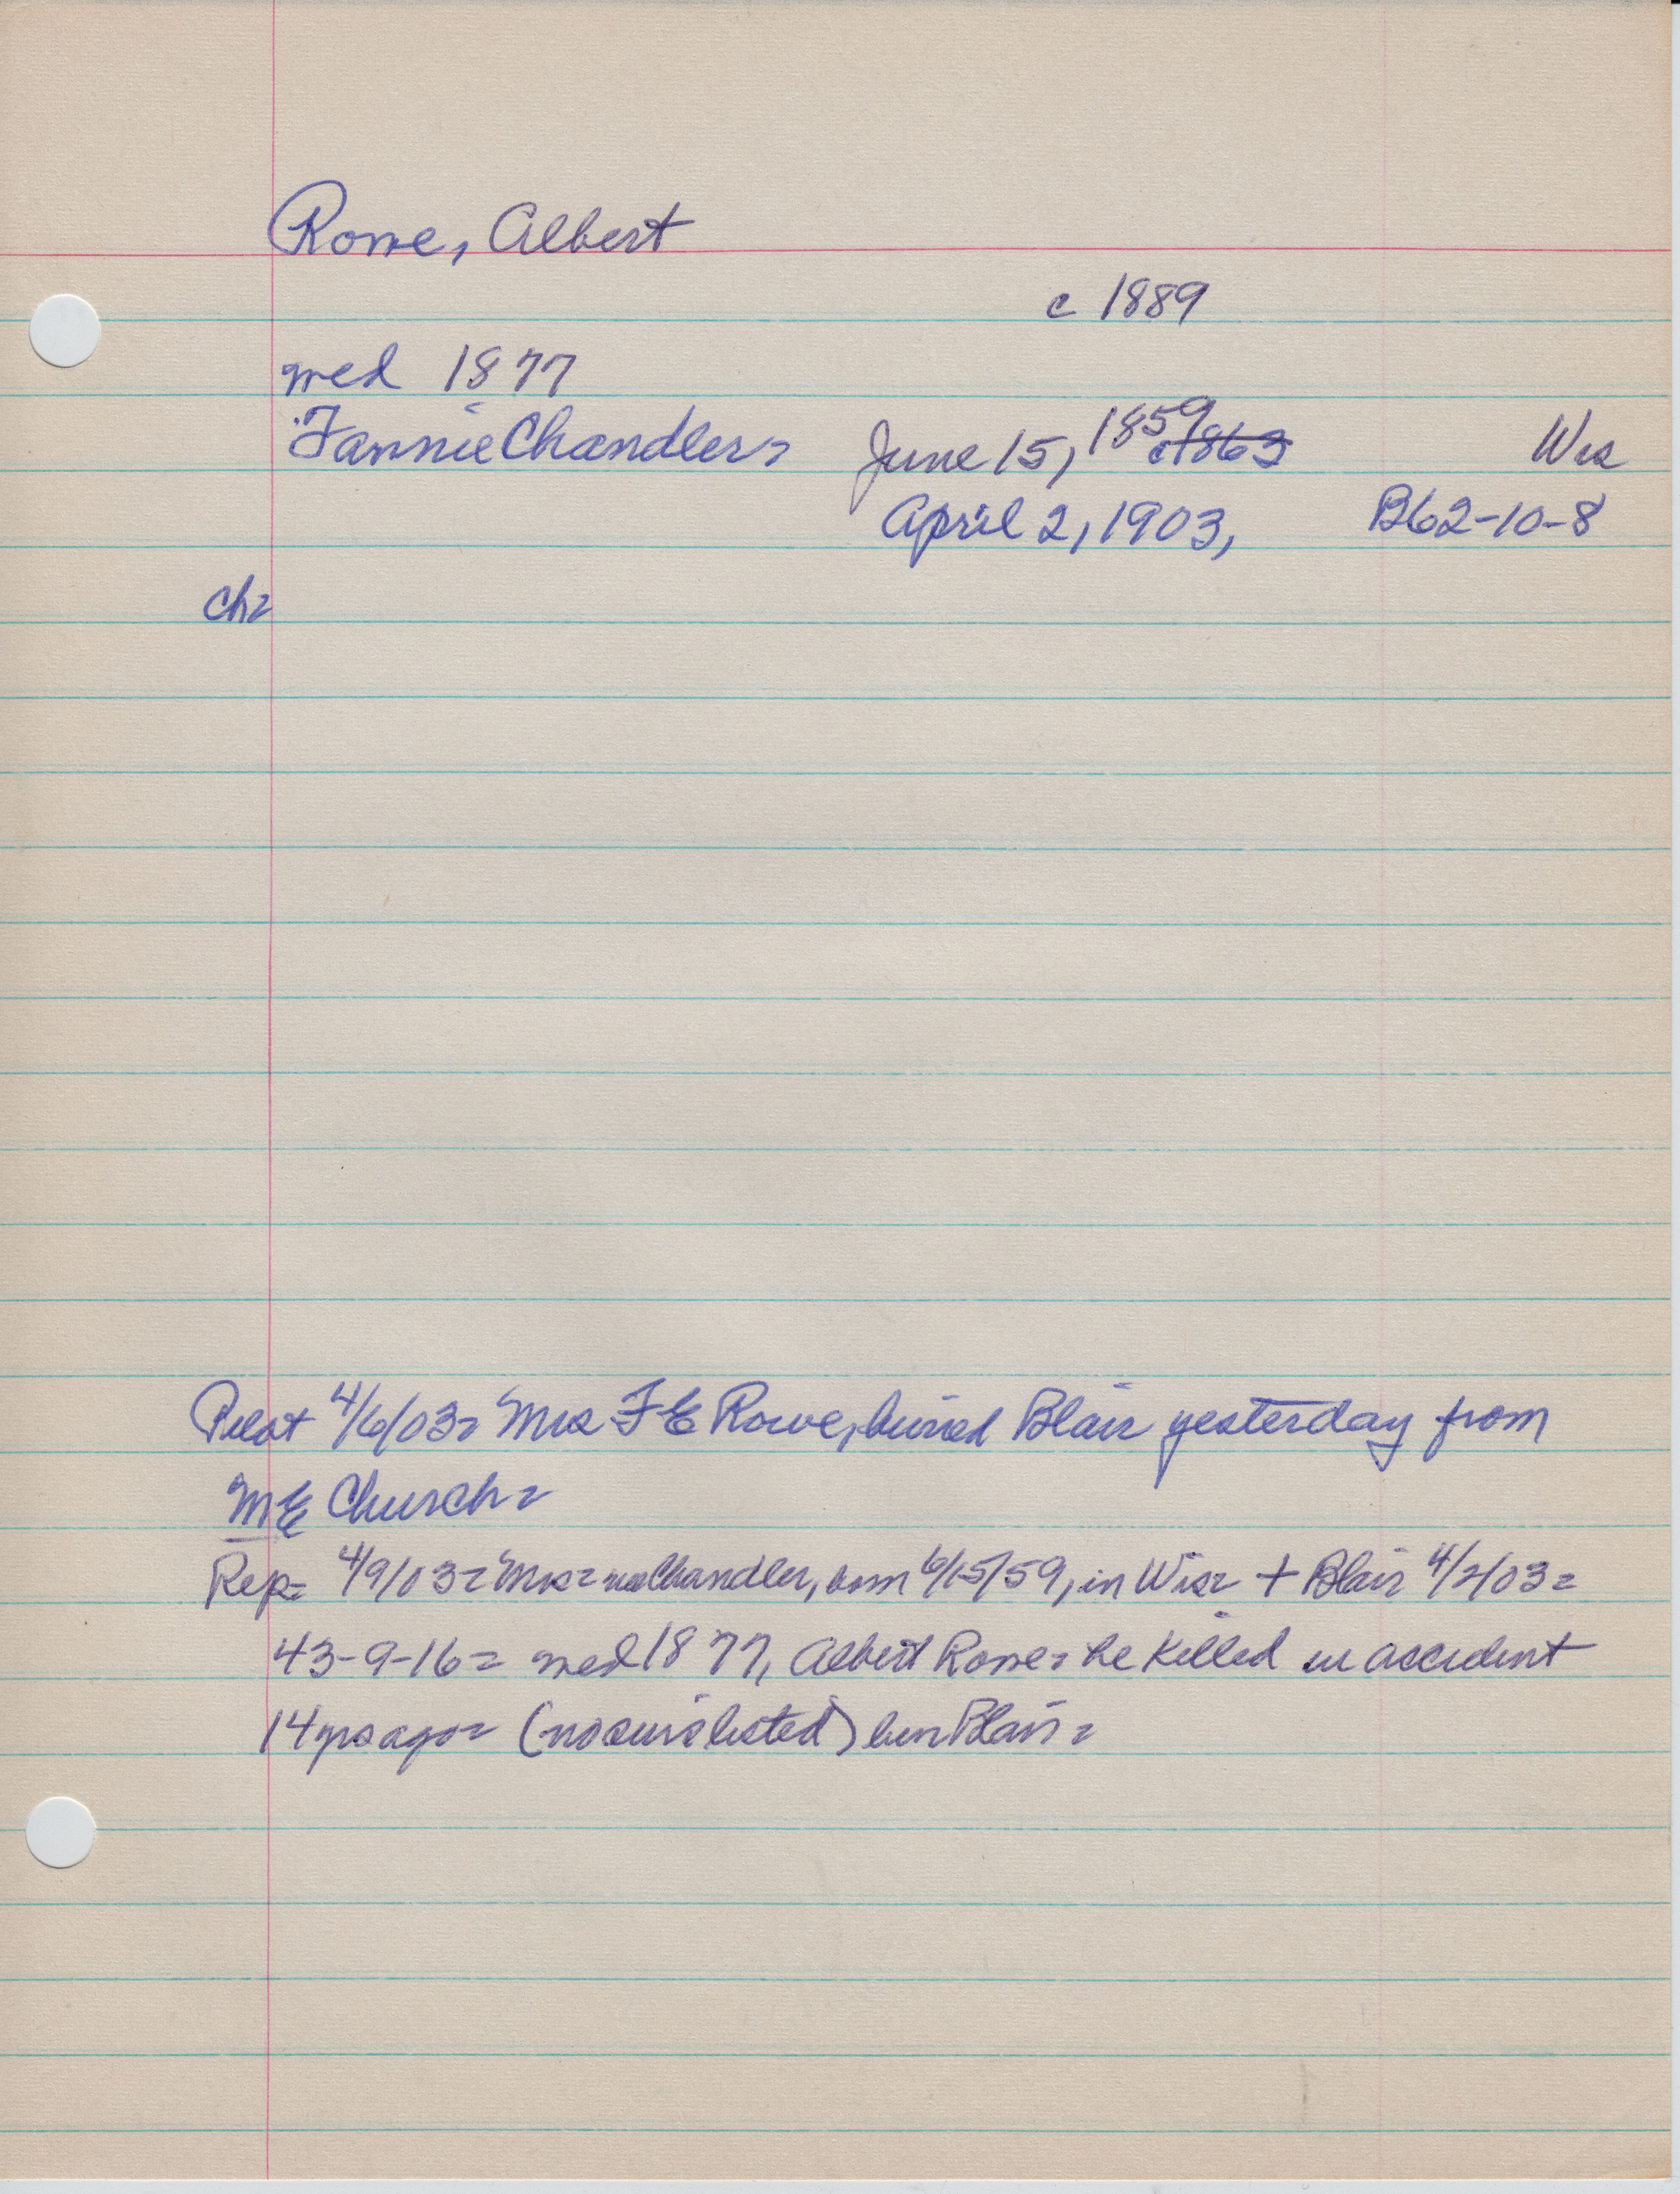 Rowe, Albert
c 1889
med 1877
Fannie Chandler= June 15, 1859 c1863 Wis
April 2, 1903, B62-10-8
Ch=
Pilot 4/6/03= Mrs F E Rowe, buried Blair yesterday from
ME Church=
Rep= 4/9/03= Mrs= nee Chandler, born 6/15/59, in Wis= + Blair 4/2/03=
43-9-16= med 1877, Albert Rowe= he killed in accident
14 yrs ago= (no surs listed) bur Blair=